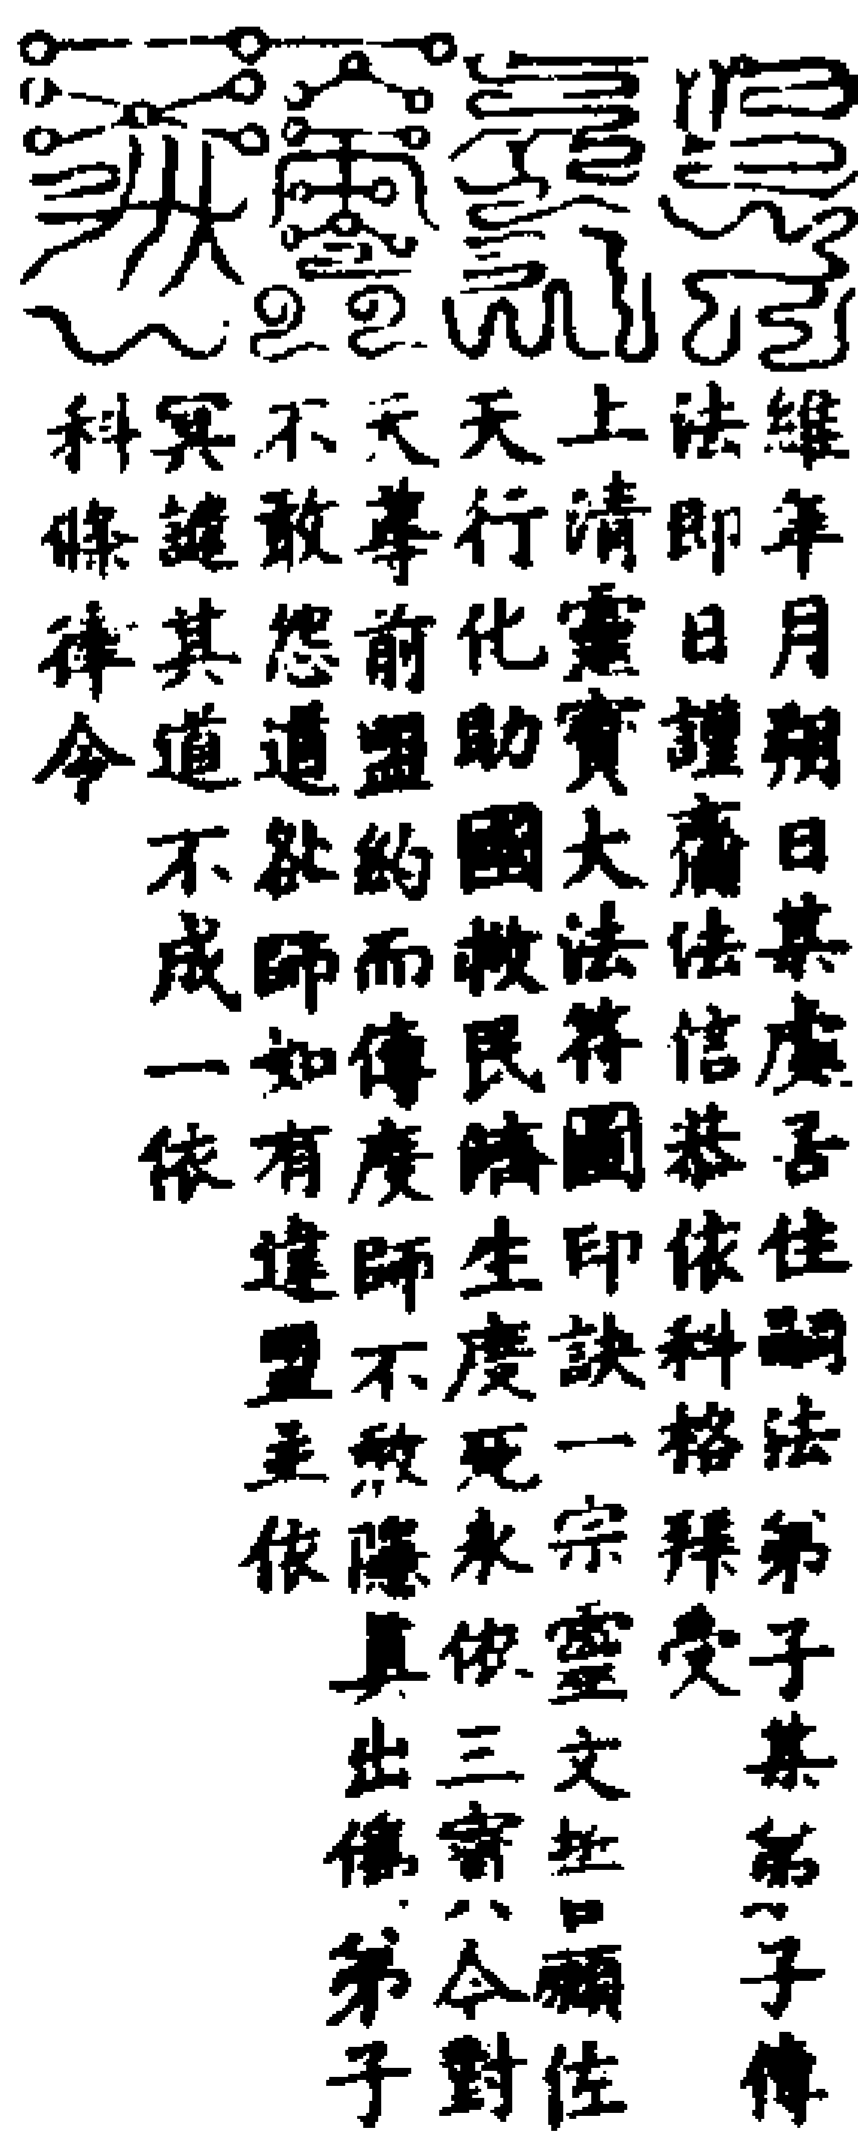 維年月朔日某處奉住嗣法弟子某弟子傳
法即日謹齎法信恭依科格拜受
上清靈寶大法符圖印訣一宗靈文誓願佐
天行化助國救民濟生度死永依三寶今對
天尊前盟約而傳度師不敢隱真出僞弟子
不敢怨道欲師如有違盟並依
冥譴其道不成一依
科條律令